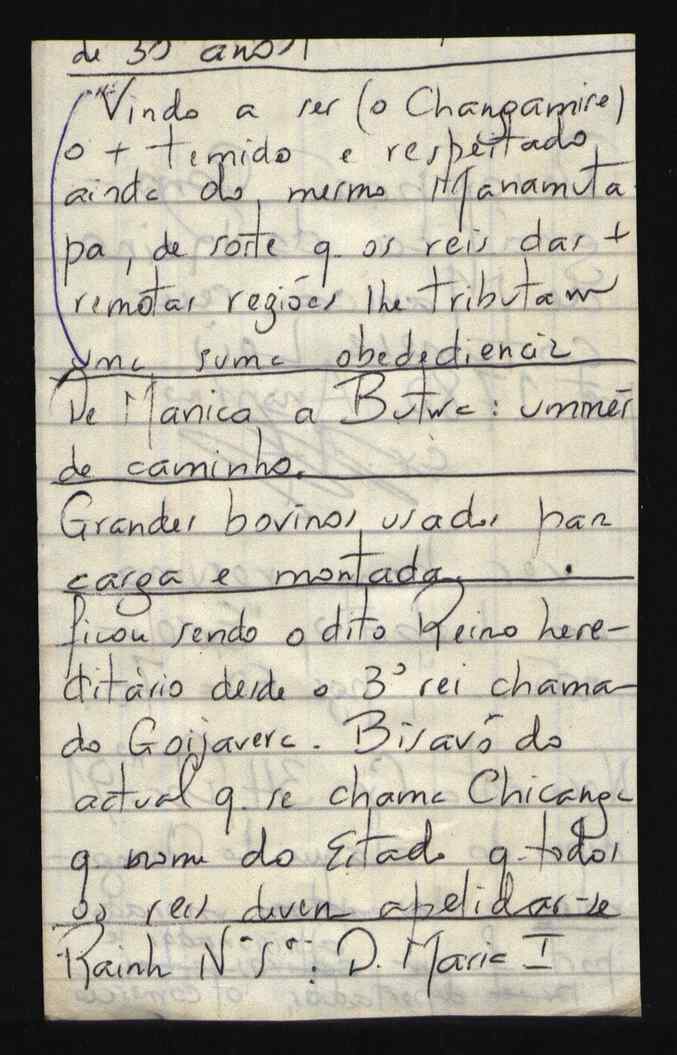 de 30 anos
"Vindo a ser (o Changamire)
o + temido e respeitado,
ainda do mesmo Manamuta-
pa, de sorte q. os reis das +
remotas regiões lhe tributam
uma suma obededienciz
De Manica a Butua: um mês
de caminho.
Grandes bovinos usados para
carga e montada.
ficou sendo o dito Reino here-
ditário desde o 3º rei chama-
do Goijavere. Bisavô do
actual q. se chama Chicanga
q nome do Estado q. todos
os reis devem apelidar-se
Rainh Nª Sª: D. Maria I